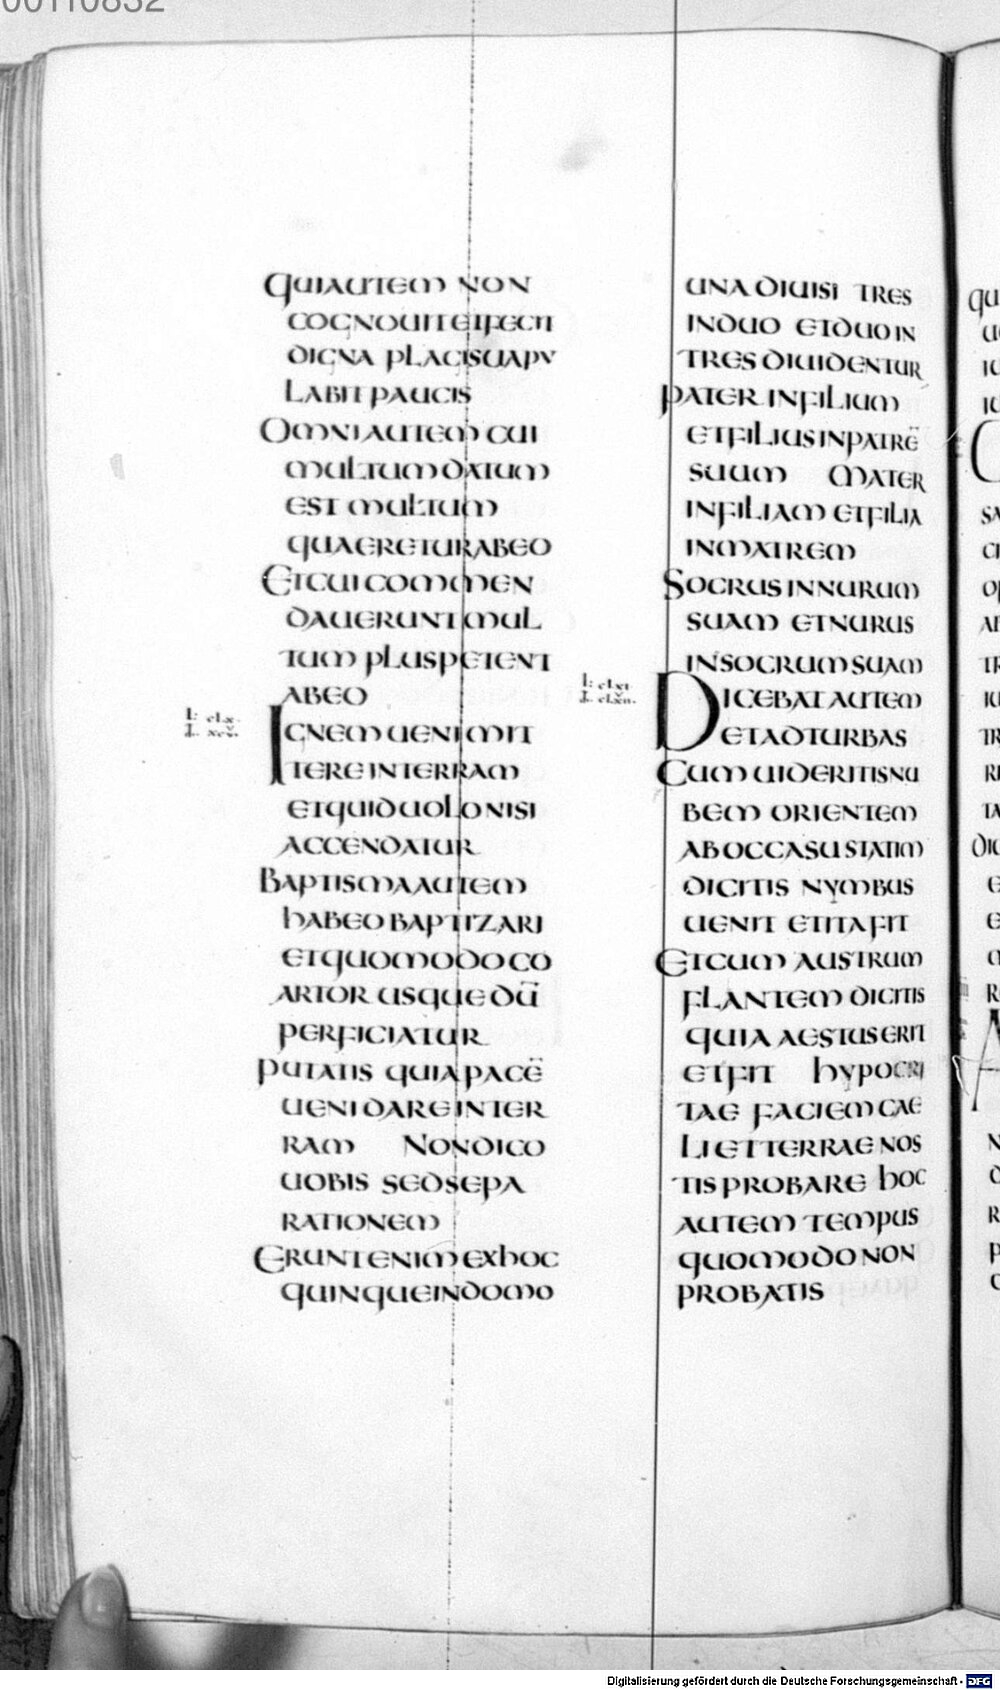 00110832
QUIAUTEM NON
COGNOUIT ETFECIT
DIGNA PLAGISUAPU
LABIT PAUCIS
OMNIAUTEM CUI
MULTUM DATUM
EST MULTUM
QUAERETURABEO
ETCUICOMMEN
DAUERUNT MUL
TUM PLUSPETENT
ABEO
L: CLX.
IGNEM UENIMIT
TERE INTERRAM
ETQUIDUOLONISI
ACCENDATUR
BAPTISMAAUTEM
HABEO BAPTIZARI
ETQUOMODOCO
ARTOR USQUE DU̅
PERFICIATUR
PUTATIS QUIAPACE̅
UENIDAREINTER
RAM NONDICO
UOBIS SEDSEPA
RATIONEM
ERUNTENIMEXHOC
QUINQUEINDOMO
UNA DIUISI TRES
INDUO ETDUOIN
TRES DIUIDENTUR
PATER INFILIUM
ETFILIUSINPATRE̅
SUUM MATER
INFILIAM ETFILIA
INMATREM
SOCRUS INNURUM
SUAM ETNURUS
INSOCRUMSUAM
L: CLXI.
DICEBAT AUTEM
ETADTURBAS
CUM UIDERITISNU
BEM ORIENTEM
ABOCCASUSTATIM
DICITIS NYMBUS
UENIT ETITAFIT
ETCUM AUSTRUM
FLANTEM DICITIS
QUIA AESTUSERIT
ETFIT HYPOCRI
TAE FACIEMCAE
LIETTERRAE NOS
TIS PROBARE HOC
AUTEM TEMPUS
QUOMODO NON
PROBATIS
Digitalisierung gefördert durch die Deutsche Forschungsgemeinschaft - DFG